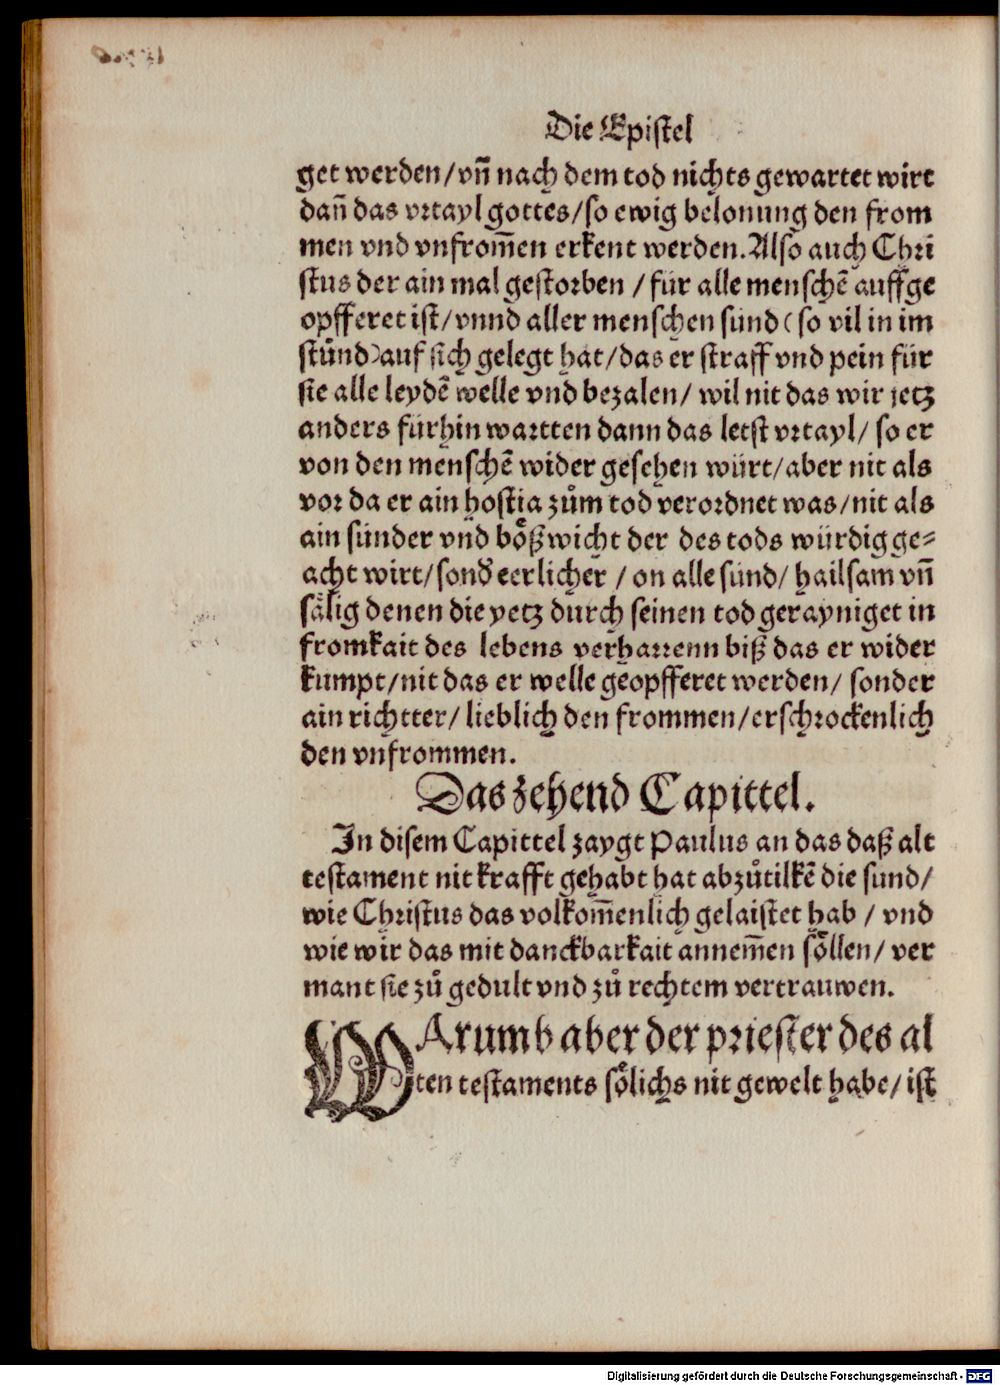 Die Epistel
get werden/vn̄ nach dem tod nichts gewartet wirt
dan̄ das vrtayl gottes/so ewig belonung den from
men vnd vnfrom̄en erkent werden. Also auch Chri
stus der ain mal gestorben /für alle menschē auffge
opfferet ist/vnnd aller menschen sünd (so vil in im
stůnd) auf sich gelegt hat/das er straff vnd pein für
sie alle leydē welle vnd bezalen/ wil nit das wir jetz
anders fürhin wartten dann das letst vrtayl/ so er
von den menschē wider gesehen würt/aber nit als
vor da er ain hostia zům tod verordnet was/nit als
ain sünder vnd bößwicht der des tods würdig ge⸗
acht wirt/sond eerlicher / on alle sünd/ hailsam vn̄
sälig denen die yetz durch seinen tod gerayniget in
fromkait des lebens verharrenn biß das er wider
kumpt/nit das er welle geopfferet werden/ sonder
ain richtter/ lieblich den frommen/erschrockenlich
den vnfrommen.
Das zehend Capittel.
In disem Capittel zaygt Paulus an das daß alt
testament nit krafft gehabt hat abzůtilkē die sund/
wie Christus das volkom̄enlich gelaistet hab / vnd
wie wir das mit danckbarkait annem̄en söllen/ ver
mant sie zů gedult vnd zů rechtem vertrauwen.
WArumb aber der priester des al
ten testaments sölichs nit gewelt habe/ ist
Digitalisierung gefördert durch die Deutsche Forschungsgemeinschaft - DFG